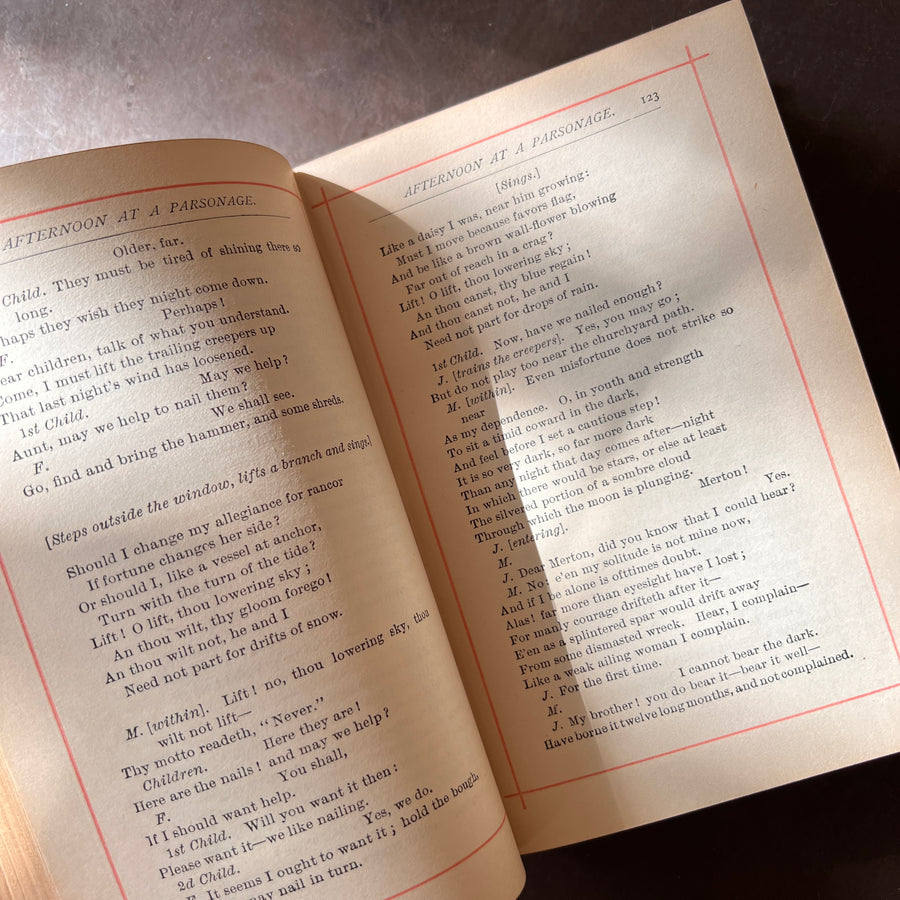 AFTERNOON AT A PARSONAGE.
Older, far.
Child. They must be tired of shining there so
long.
haps they wish they might come down.
Perhaps!
F.
ear children, talk of what you understand.
Come, I must lift the trailing creepers up
That last night's wind has loosened.
1st Child. May we help?
Aunt, may we help to nail them?
F. We shall see.
Go, find and bring the hammer, and some shreds.
[Steps outside the window, lifts a branch and sings.]
Should I change my allegiance for rancor
If fortune changes her side?
Or should I, like a vessel at anchor,
Turn with the turn of the tide?
Lift! O lift, thou lowering sky;
An thou wilt, thy gloom forego!
An thou wilt not, he and I
Need not part for drifts of snow.
M. [within]. Lift! no, thou lowering sky, thou
wilt not lift—
Thy motto readeth, "Never."
Children. Here they are!
Here are the nails! and may we help?
F. You shall,
If I should want help.
1st Child. Will you want it then?
Please want it—we like nailing.
2d Child. Yes, we do.
F. It seems I ought to want it; hold the bough,
may nail in turn.
AFTERNOON AT A PARSONAGE. 123
[Sings.]
Like a daisy I was, near him growing:
Must I move because favors flag,
And be like a brown wall-flower blowing
Far out of reach in a crag?
Lift! O lift, thou lowering sky;
An thou canst, thy blue regain!
And thou canst not, he and I
Need not part for drops of rain.
1st Child. Now, have we nailed enough?
J. [trains the creepers]. Yes, you may go;
But do not play too near the churchyard path.
M. [within]. Even misfortune does not strike so
near
As my dependence. O, in youth and strength
To sit a timid coward in the dark,
And feel before I set a cautious step!
It is so very dark, so far more dark
Than any night that day comes after—night
In which there would be stars, or else at least
The silvered portion of a sombre cloud
Through which the moon is plunging.
J. [entering]. Merton!
M. Yes.
J. Dear Merton, did you know that I could hear?
M. No: e'en my solitude is not mine now,
And if I be alone is ofttimes doubt.
Alas! far more than eyesight have I lost;
For manly courage drifteth after it—
E'en as a splintered spar would drift away
From some dismasted wreck. Hear, I complain—
Like a weak ailing woman I complain.
J. For the first time.
M. I cannot bear the dark.
J. My brother! you do bear it—bear it well—
Have borne it twelve long months, and not complained.